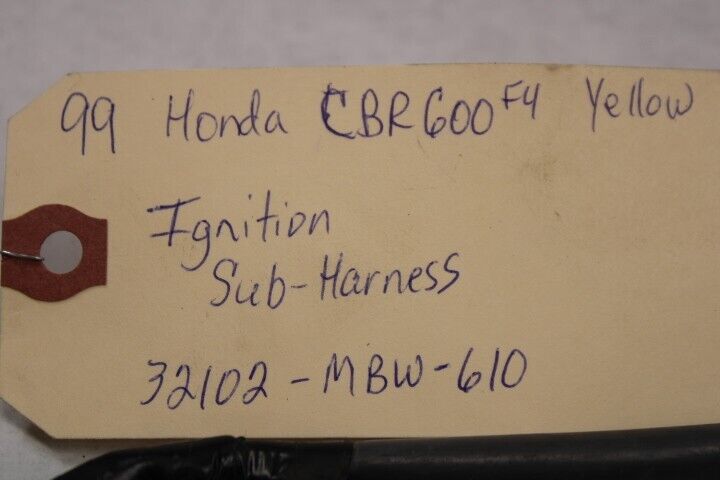 99 Honda CBR600F4 Yellow
Ignition
Sub-Harness
32102-MBW-610